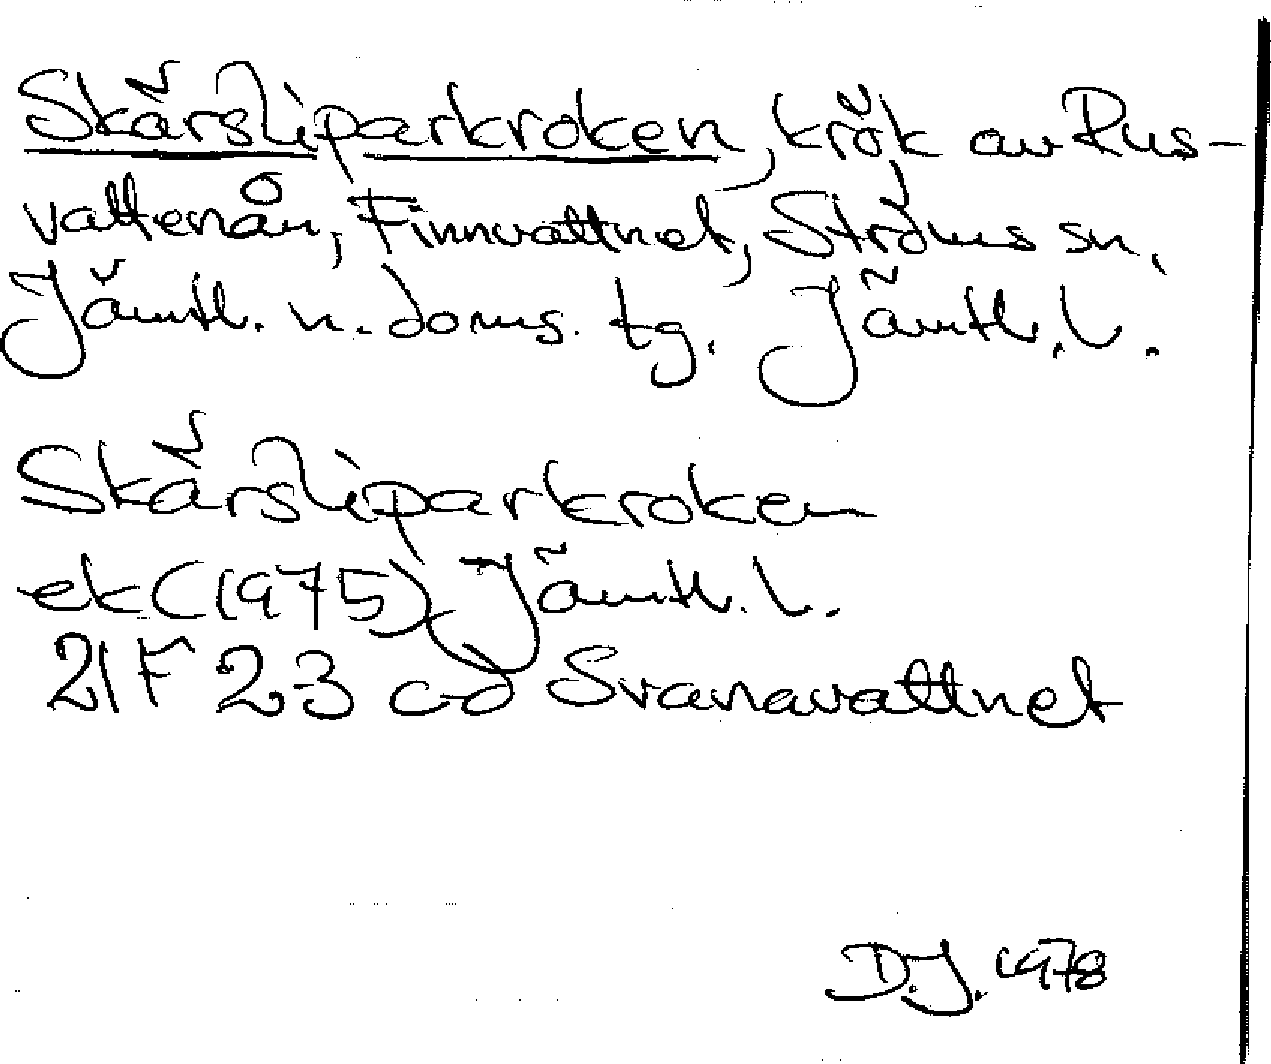 Skärsliparkroken, krök av Rus-
vattenån, Finnvattnet, Ströms sn,
Jämtl. n. doms. tg. Jämtl. l.
Skärsliparkroken
ek (1975) Jämtl. l.
21F 23 cd Svanavattnet
D.J. 1978